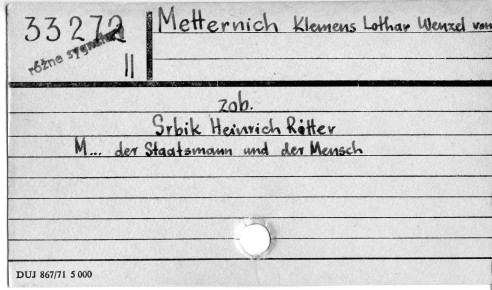 33272
różne sygnatury
II
Metternich Klemens Lothar Wenzel von
zob.
Srbik Heinrich Ritter
M... der Staatsmann und der Mensch
DUJ 867/71 5 000